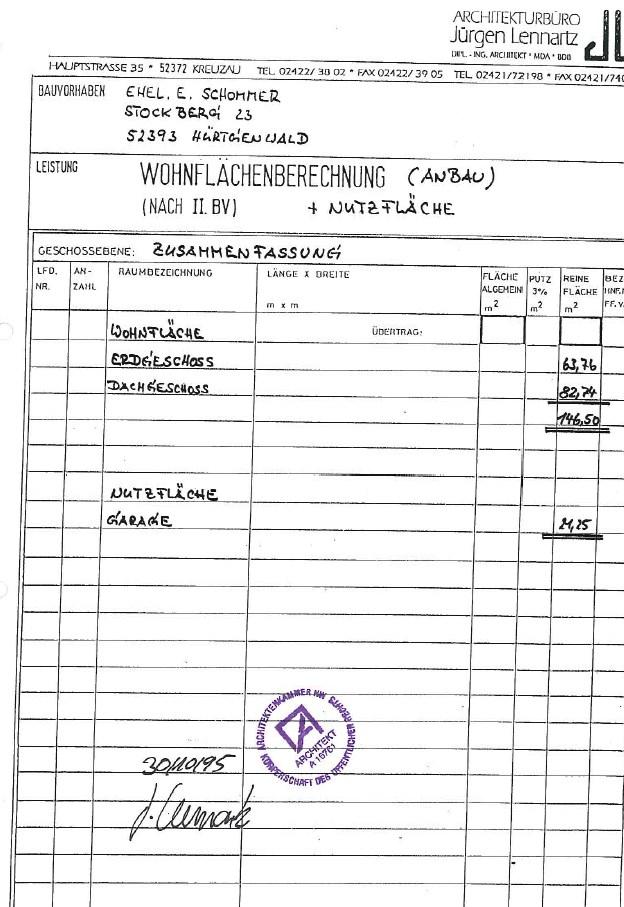 ARCHITEKTURBÜRO
Jürgen Lennartz
DIPL.-ING. ARCHITEKT * MDA * BDB
HAUPTSTRASSE 35 * 52372 KREUZAU TEL. 02422/38 02 * FAX 02422/39 05 TEL. 02421/72198 * FAX 02421/740
BAUVORHABEN EHEL. E. SCHOMMER
STOCKBERG 23
52393 HÜRTGENWALD
LEISTUNG WOHNFLÄCHENBERECHNUNG (ANBAU)
(NACH II. BV) + NUTZFLÄCHE
GESCHOSSEBENE: ZUSAMMENFASSUNG
LFD. NR. AN- ZAHL RAUMBEZEICHNUNG LÄNGE X BREITE m x m FLÄCHE ALGEMEIN m² PUTZ 3% m² REINE FLÄCHE m²
WOHNFLÄCHE ÜBERTRAG:
ERDGESCHOSS 63,76
DACHGESCHOSS 82,74
146,50
NUTZFLÄCHE
GARAGE 21,25
ARCHITEKTENKAMMER NW
KÖRPERSCHAFT DES ÖFFENTLICHEN RECHTS
ARCHITEKT
A 16761
30/10/95
J. Lennartz